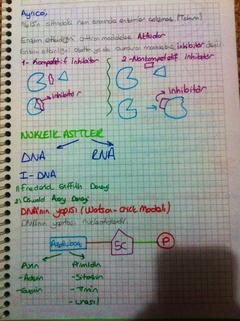 Ayrıca;
Enzim etkinliğini artıran maddelere Aktivatör
Enzim etkinliğini azaltan ya da durduran maddelere inhibitör denir
1- Kompetitif inhibitör
2- Nonkompetitif inhibitör
inhibitör
inhibitör
NÜKLEİK ASİTLER
DNA
RNA
I- DNA
1) Frederick Griffith Deneyi
2) Oswald Avery Deneyi
DNA'nın yapısı (Watson-crick Modeli)
5C
P
Pürin
Pirimidin
- Adenin
- Sitozin
- Guanin
- Timin
- Urasil